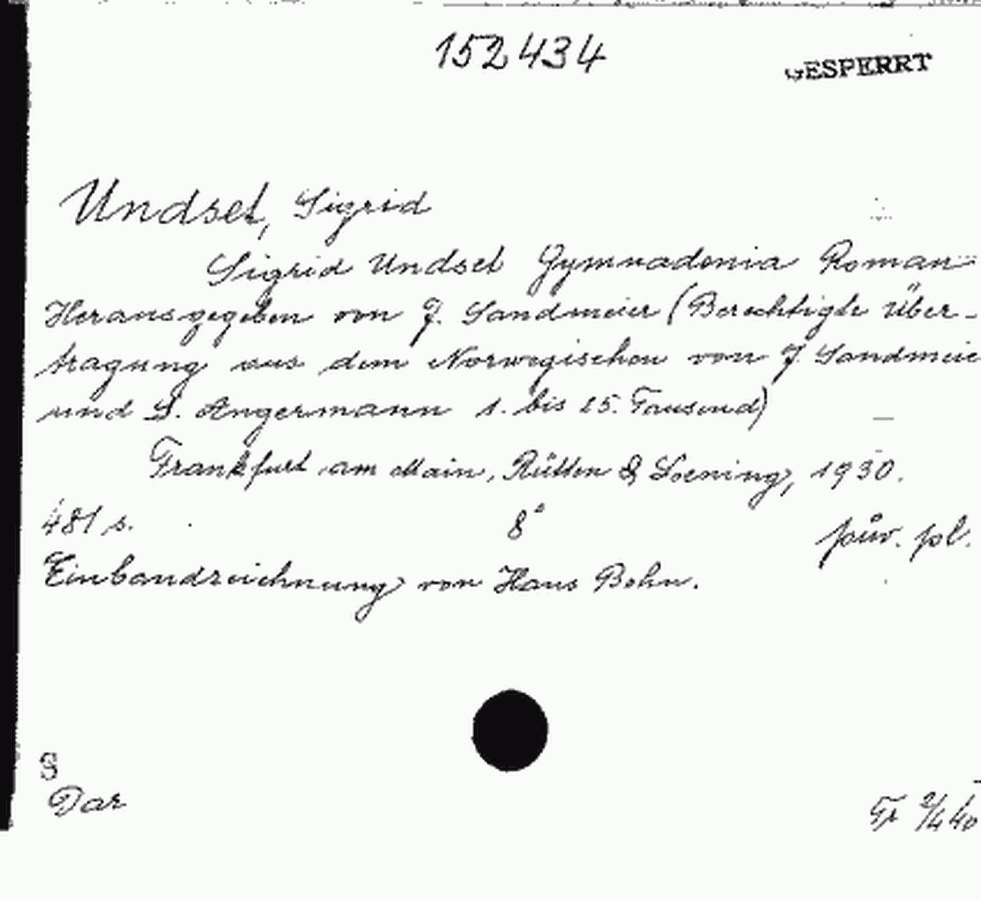 152434
GESPERRT
Undset, Sigrid
Sigrid Undset Gymnadenia Roman
Herausgegeben von J. Sandmeier (Berechtigte Über-
tragung aus dem Norwegischen von J. Sandmeie
und S. Angermann 1. bis 15. Tausend)
Frankfurt am Main, Rütten & Loening, 1930.
481 s. 8°
Einbandzeichnung von Hans Bohn.
S
Dar